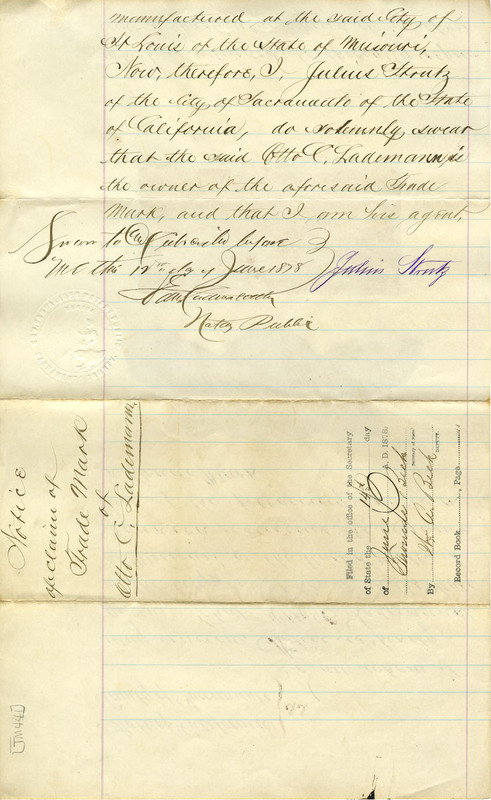 manufactured, at the said City of
St Louis of the State of Missouri,
Now, therefore, I, Julius Stroutz
of the City of Sacramento of the State
of California, do solemnly swear
that the said Otto C. Lademann, is
the owner of the aforesaid Trade
Mark, and that I am his agent.
Sworn to and Subscribed before
me this 12th day of June 1878
Julius Stroutz
Notary Public
Notice
of claim of
Trade Mark
of
Otto C. Lademann
Filed in the office of the Secretary
of State the 14th day
of June A. D. 1878.
Thomas Beck
Secretary of State
By Wm C. Beck
DEPUTY.
Record Book Page
TM 441